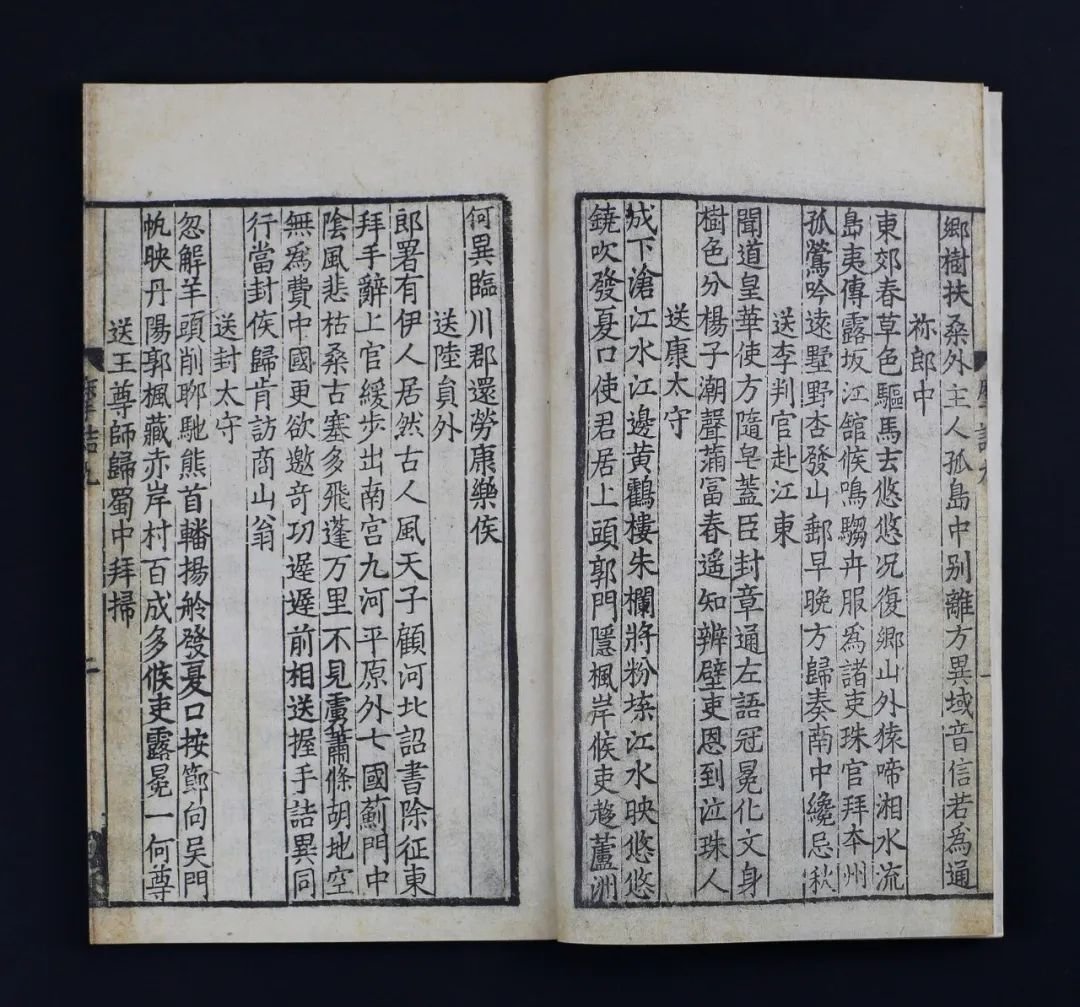 鄉樹扶桑外主人孤島中别離方異域音信若為通
祢郎中
東郊春草色驅馬去悠悠况復鄉山外猿啼湘水流
島夷傳露坂江館候鳴騶卉服為諸吏珠官拜本州
孤鶯吟遠墅野杏發山郵早晚方歸奏南中纔忌秋
送李判官赴江東
聞道皇華使方隨皂蓋臣封章通左語冠冕化文身
樹色分楊子潮聲蒲富春遥知辨璧吏恩到泣珠人
送康太守
城下滄江水江邊黄鶴樓朱欄將粉堞江水映悠悠
鐃吹發夏口使君居上頭郭門隱楓岸候吏趍蘆洲
何異臨川郡還勞康樂侯
送陸員外
郎署有伊人居然古人風天子顧河北詔書除征東
拜手辭上官緩步出南宫九河平原外七國薊門中
陰風悲枯桑古塞多飛蓬万里不見虜蕭條胡地空
無為費中國更欲邀奇功遲遲前相送握手詰異同
行當封侯歸肯訪商山翁
送封太守
忽解羊頭削聊馳熊首轓揚舲發夏口按節向吴門
帆映丹陽郭楓藏赤岸村百成多候吏露冕一何尊
送王尊師歸蜀中拜掃